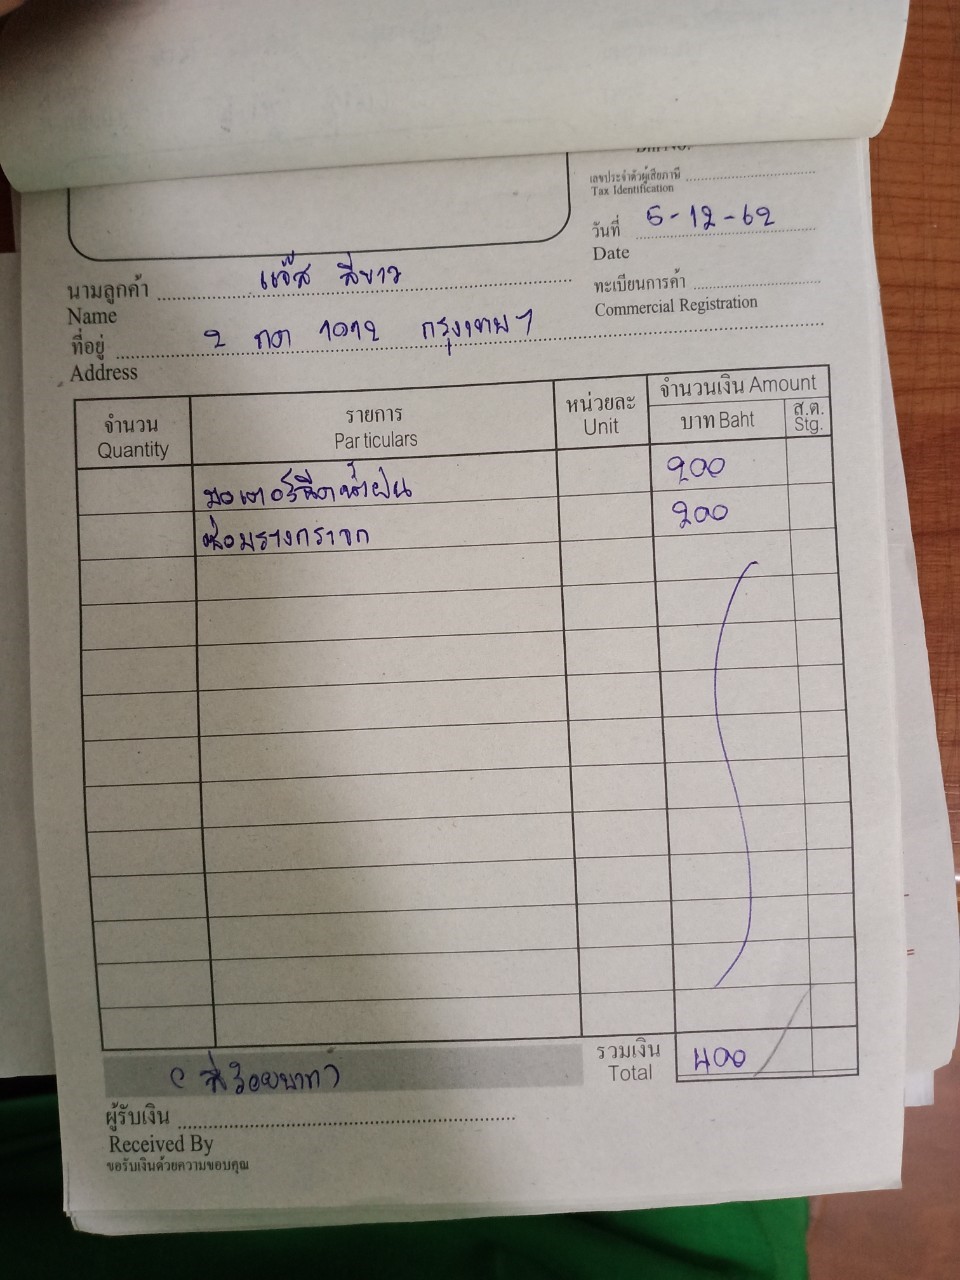 เลขประจำตัวผู้เสียภาษี
Tax Identification
วันที่ 5-12-62
Date
นามลูกค้า แจ๊ส สีขาว
Name
ทะเบียนการค้า
Commercial Registration
ที่อยู่ 2 กด 1012 กรุงเทพฯ
Address
จำนวน
Quantity
รายการ
Particulars
หน่วยละ
Unit
จำนวนเงิน Amount
บาท Baht
ส.ต.
Stg.
มอเตอร์ฉีดน้ำฝน 200
ซ่อมรางกระจก 200
(สี่ร้อยบาท)
รวมเงิน 400
Total
ผู้รับเงิน
Received By
ขอรับเงินด้วยความขอบคุณ